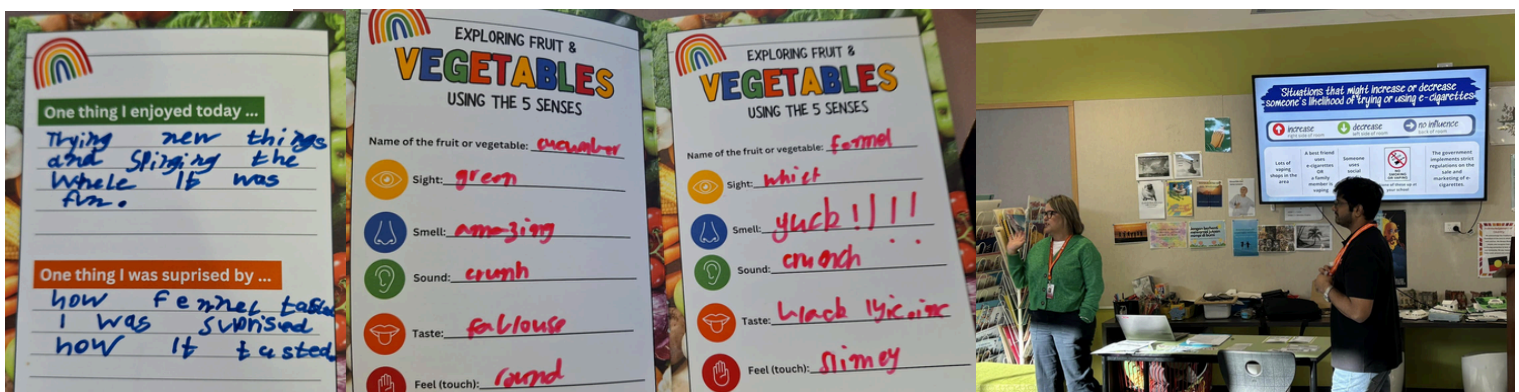 One thing I enjoyed today ...
Trying new things
and spinging the
whele it was
fun.
One thing I was suprised by ...
how fennel tasted
I was suprised
how it tasted.
EXPLORING FRUIT &
VEGETABLES
USING THE 5 SENSES
Name of the fruit or vegetable: cucumber
Sight: green
Smell: amazing
Sound: crunh
Taste: fablouse
Feel (touch): round
EXPLORING FRUIT &
VEGETABLES
USING THE 5 SENSES
Name of the fruit or vegetable:
Sight:
Smell: yuck!!!!
Sound: crunch
Taste: black
Feel (touch): slimey
Situations that might increase or decrease
someone's likelihood of trying or using e-cigarettes
increase
right side of room
decrease
left side of room
no influence
back of room
Lots of
vaping
shops in the
area
A best friend
uses
e-cigarettes
OR
a family
member is
vaping
Someone
uses
social
NO
SMOKING
OR VAPING
at your
school
The government
implements strict
regulations on the
sale and
marketing of e-
cigarettes